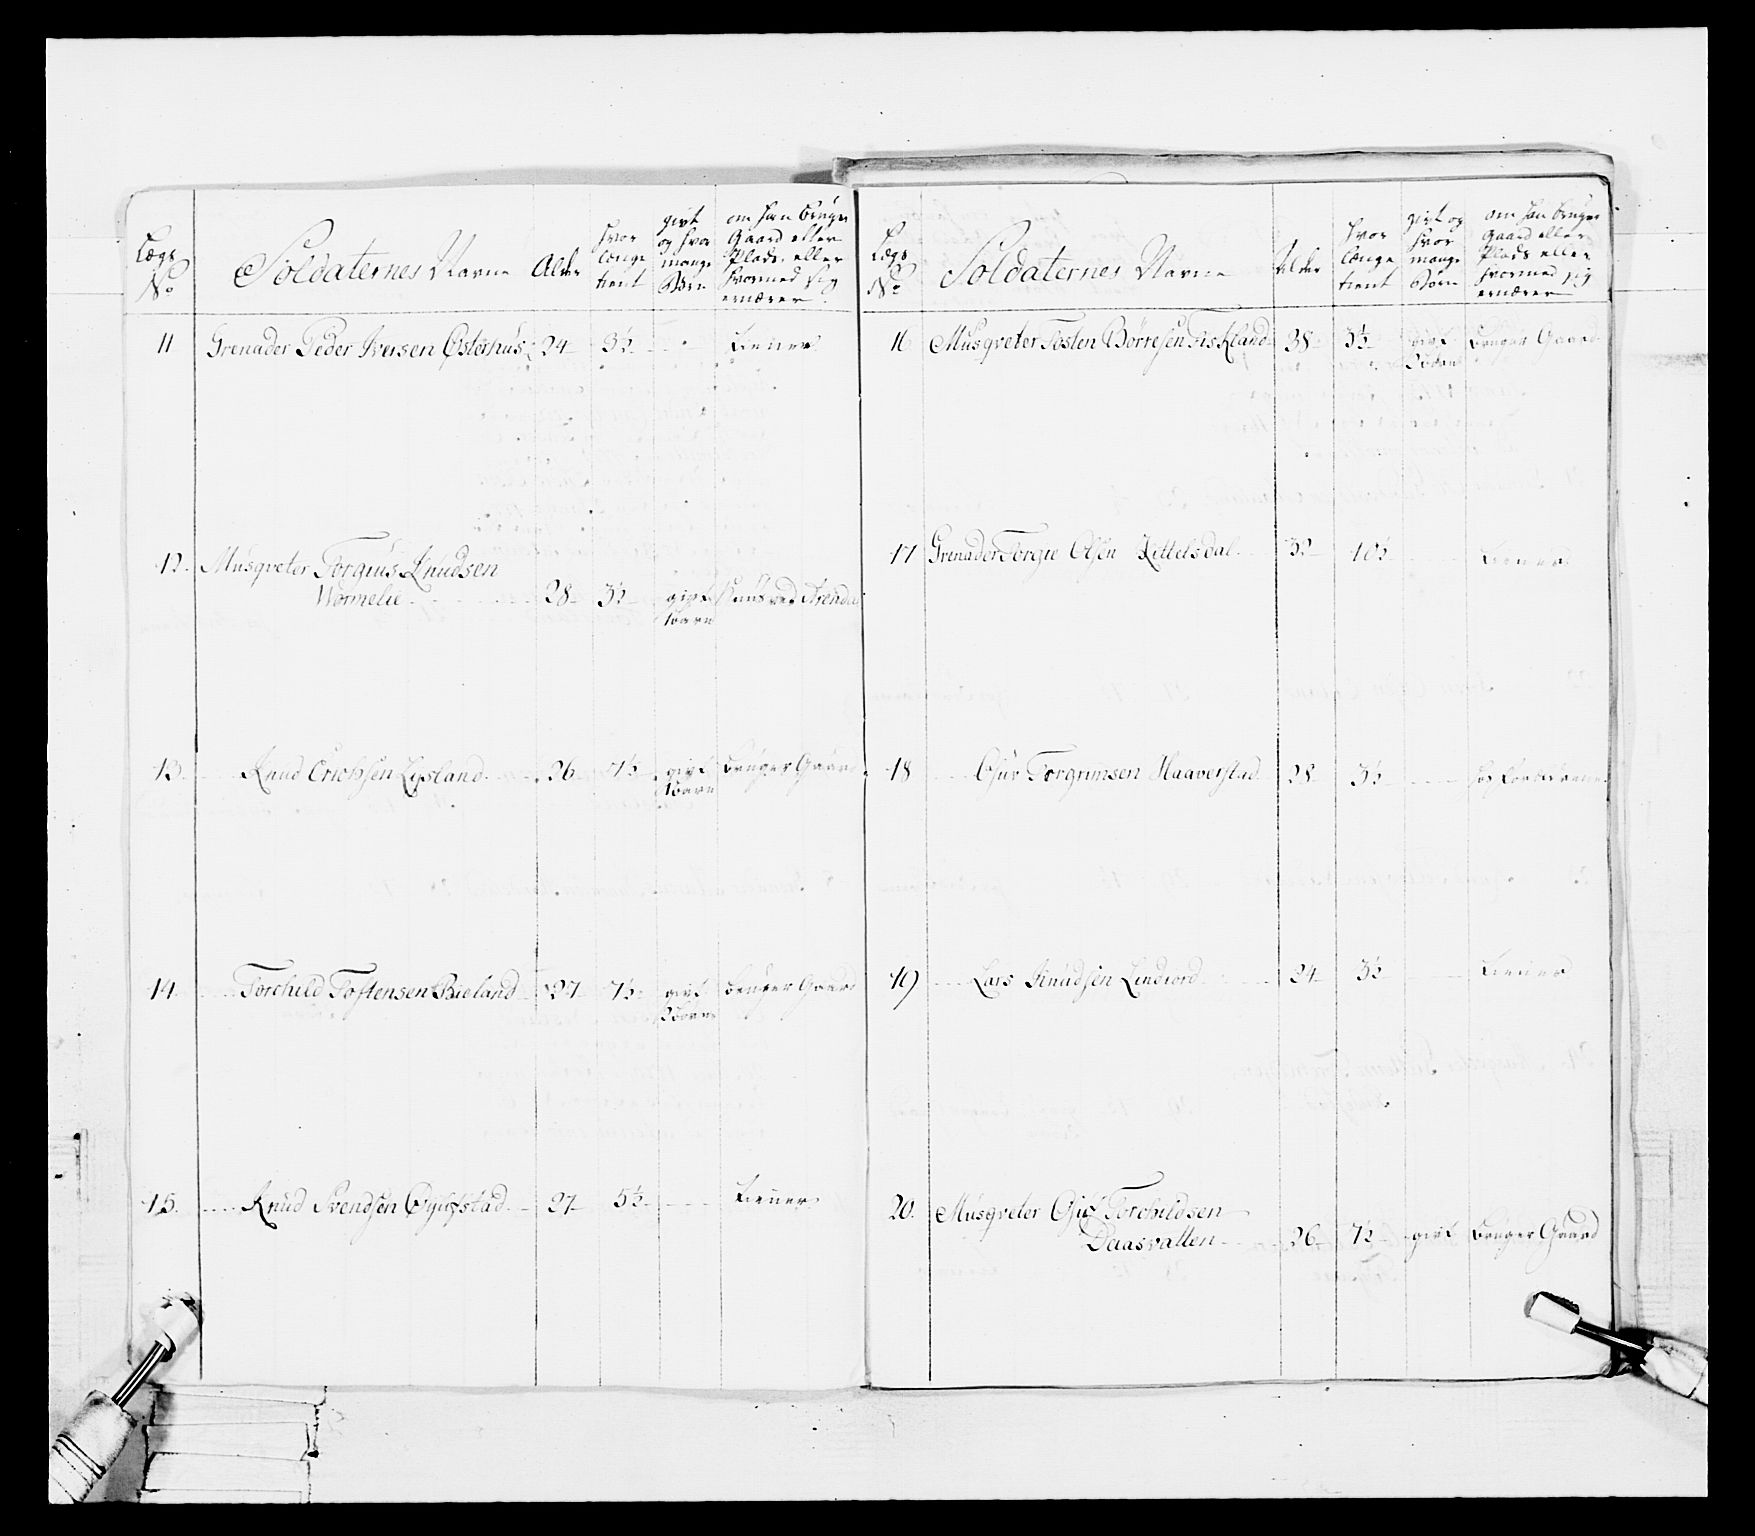 Lægs No
Soldaternes Navne
Alder
hvor længe tient
givt og hvor mange Børn
om han bruger Gaard eller Plads, eller hvormed sig ernærer.
11 Grenader Peder Iversen Østerhus 24 3½ - Tiener
12. Musqveter Torgius Knudsen
Wormelie 28 3½ givt 1 barn ved Arendal
13. Knud Erichsen Lisland 26 7½ givt 1 barn bruger Gaard
14. Torchild Tostensen Bieland 27 7½ givt 2 børn bruger Gaard
15. Knud Svendsen 27 5½ Tiener
Lægs No
Soldaternes Navne
Alder
hvor længe tient
givt og hvor mange Børn
om han bruger Gaard eller Plads eller hvormed sig ernærer
16 Musqveter Tosten Børresen Fiskland 38 3½ givt bruger Gaard
17 Grenader Torgie Olsen Kittelsdal 32 10½ Tiener
18 Torgrimsen Haaverstad 28 3½ hos Forældrene
19 Lars Knudsen Lindiord 24 3½ Tiener
20. Musqveter Torchildsen
Daasvatten 26 7½ givt bruger Gaard